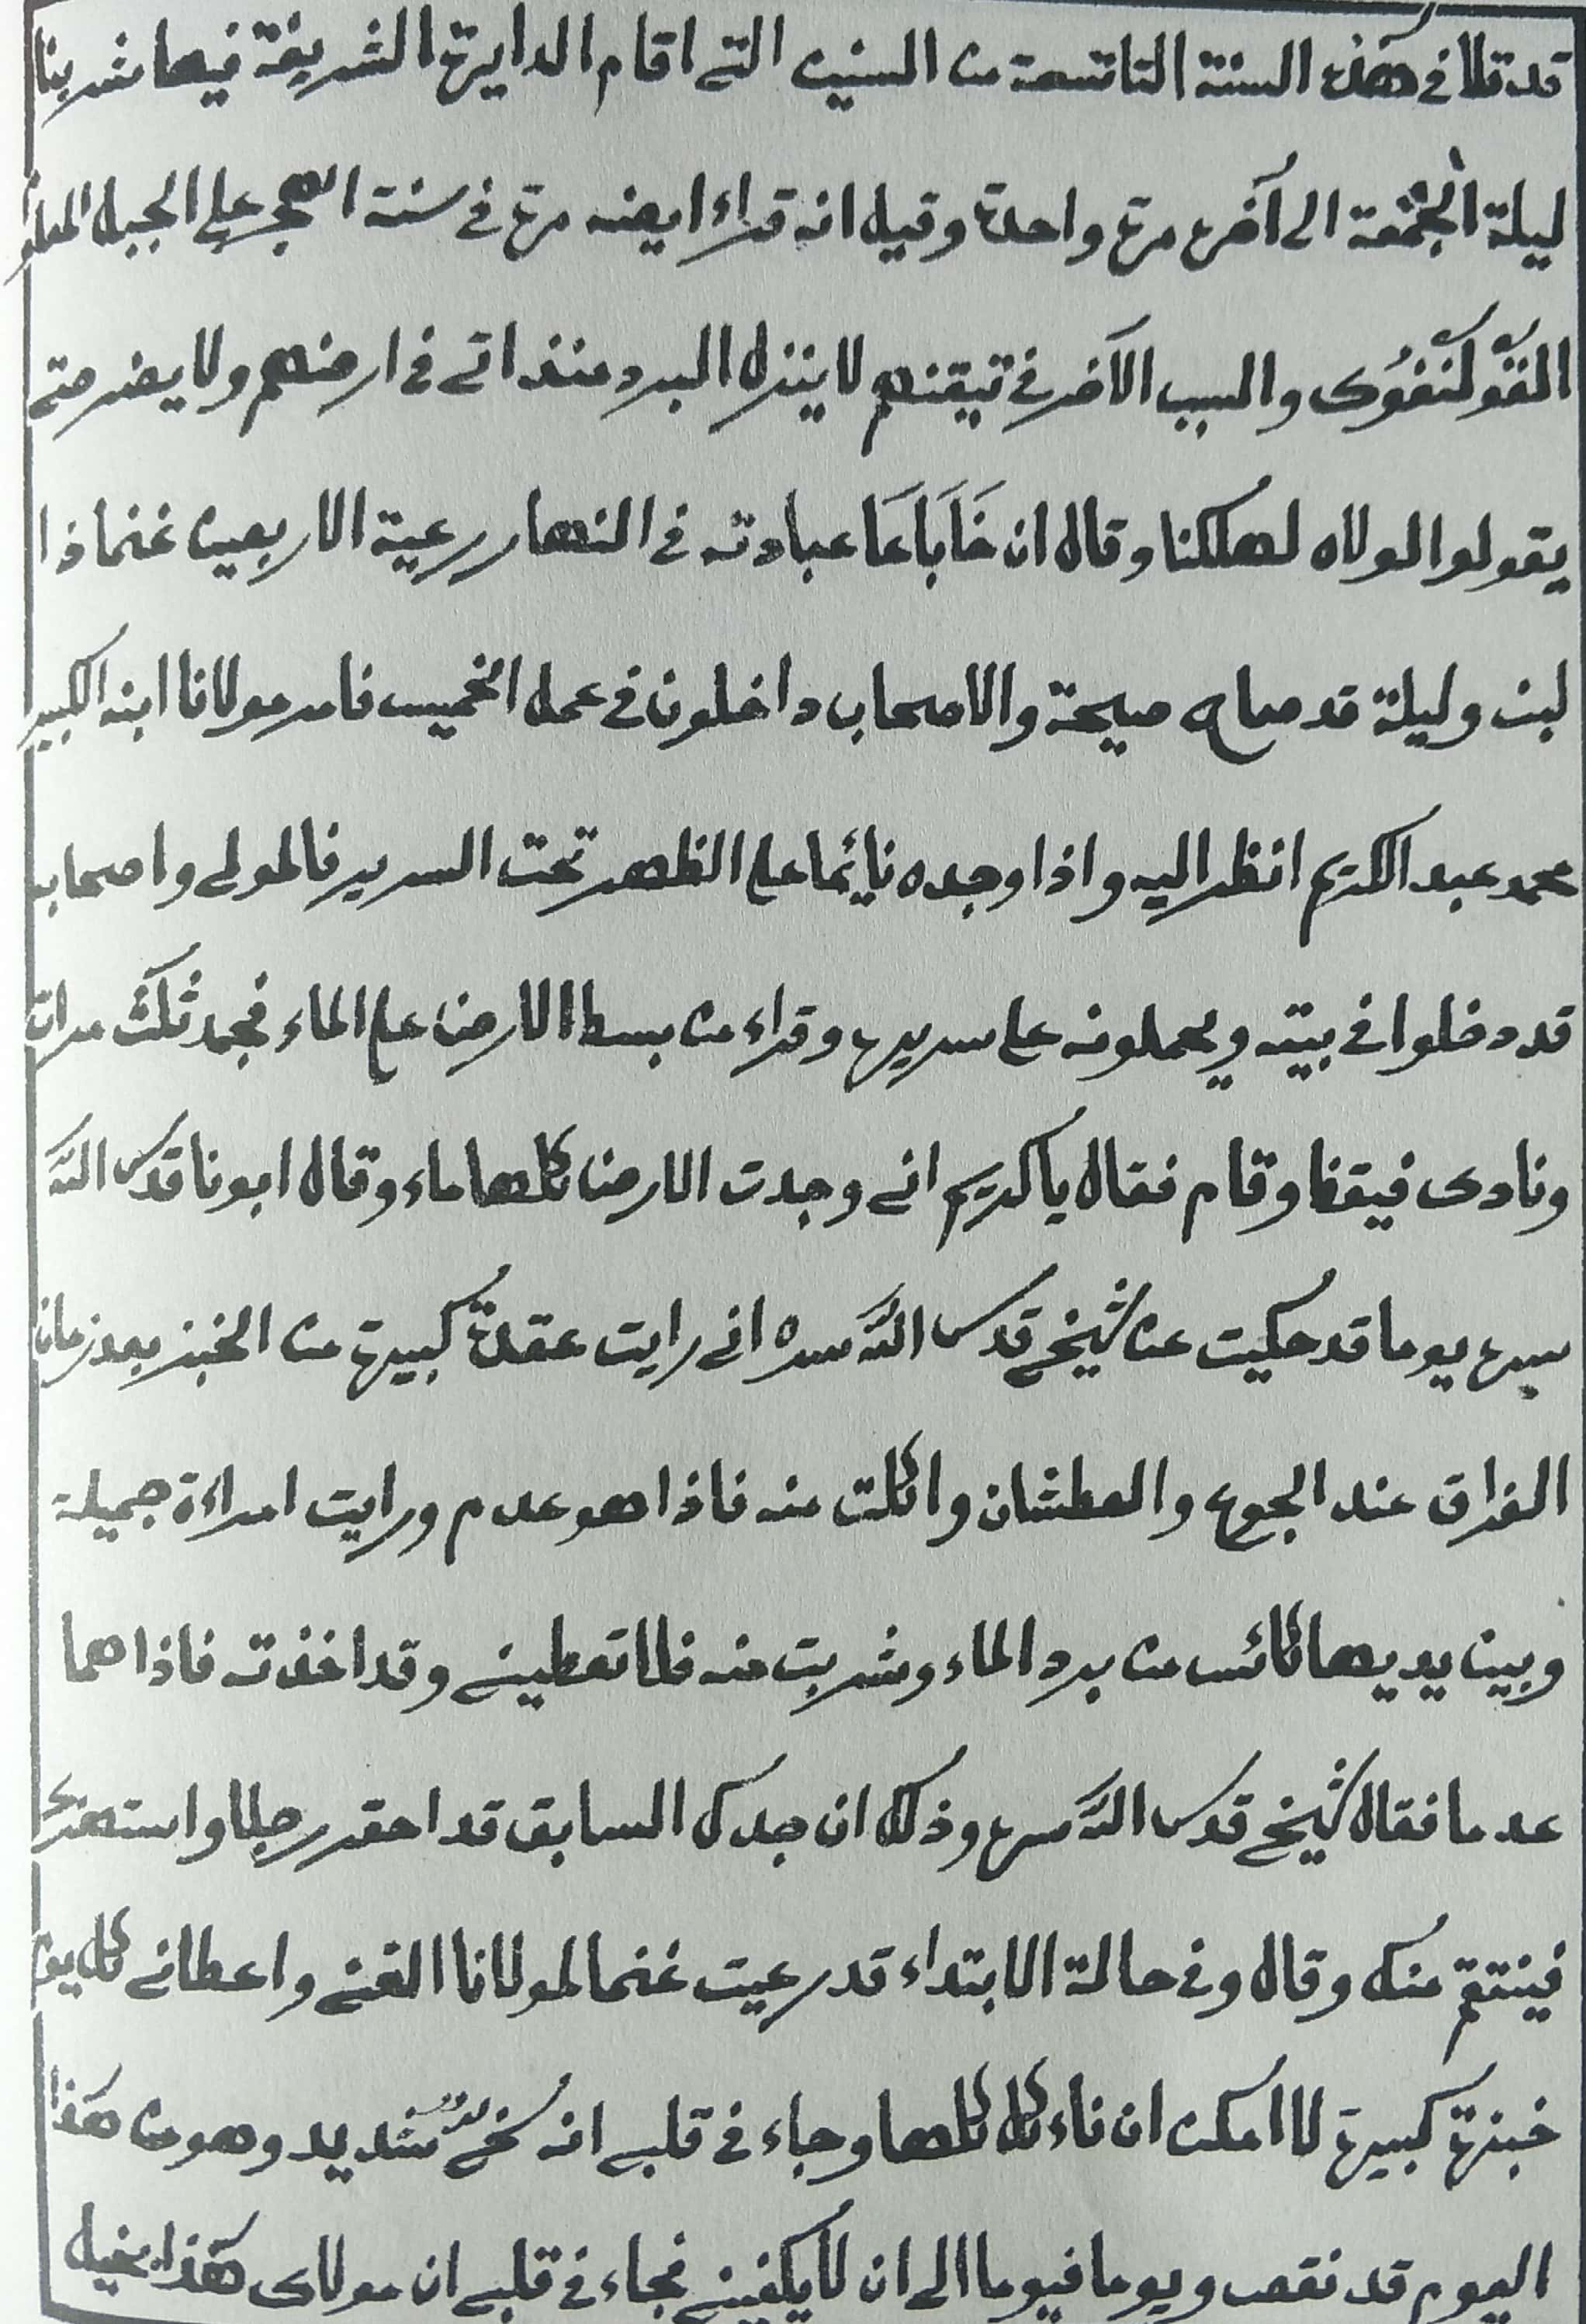 قد تلا فى هذه السنة التاسعة من السنين التى اقام الدايرة الشريفة فيها مشربنا
ليلة الجمعة الى آخره مرة واحدة وقيل انه قراء ايضه مرة فى سنة الهجر على الجبل
والسبب الآخر فى تيقنهم لا ينزل البرد منذ اتى فى ارضهم ولا يضر متى
يقولوا لولاه لهلكنا وقال ان خَابَاعَا عبادته فى النهار رعية الاربعين غنما ذا
لبن وليلة قد صاح صيحة والاصحاب داخلون فى عمل الخميس فامر مولانا ابنه الكبير
محمد عبد الكريم انظر اليه واذا وجده نائما على الظهر تحت السرير فالمولى واصحابه
قد دخلوا فى بيته ويحملونه على سريره وقراء من بسط الارض على الماء فجمد ثلث مرات
ونادى فيقفا وقام فقال يا كريم انى وجدت الارض كلها ماء وقال ابونا قدس الله
سره يوما قد حكيت عن شيخى قدس الله سره انى رايت عقدة كبيرة من الخبز بعد زمان
الفراق عند الجوع والعطشان واكلت منه فاذا هو عدم ورايت امراءة جميلة
وبين يديها كائس من برد الماء وشربت منه فلما تعطينى وقد اخذته فاذا هما
عدما فقال شيخى قدس الله سره وذلك ان جدك السابق قد احقر رجلا واستهزء
فينتقم منك وقال وفى حالة الابتداء قد رعيت غنما لمولانا الغنى واعطانى كل يوم
خبزة كبيرة لا امكن ان ناءكل كلها وجاء فى قلبى انه سخى شديد وهو من هذا
اليوم قد نقص ويوما فيوما الى ان لا يكفينى فجاء فى قلبى ان مولاى هذا بخيل